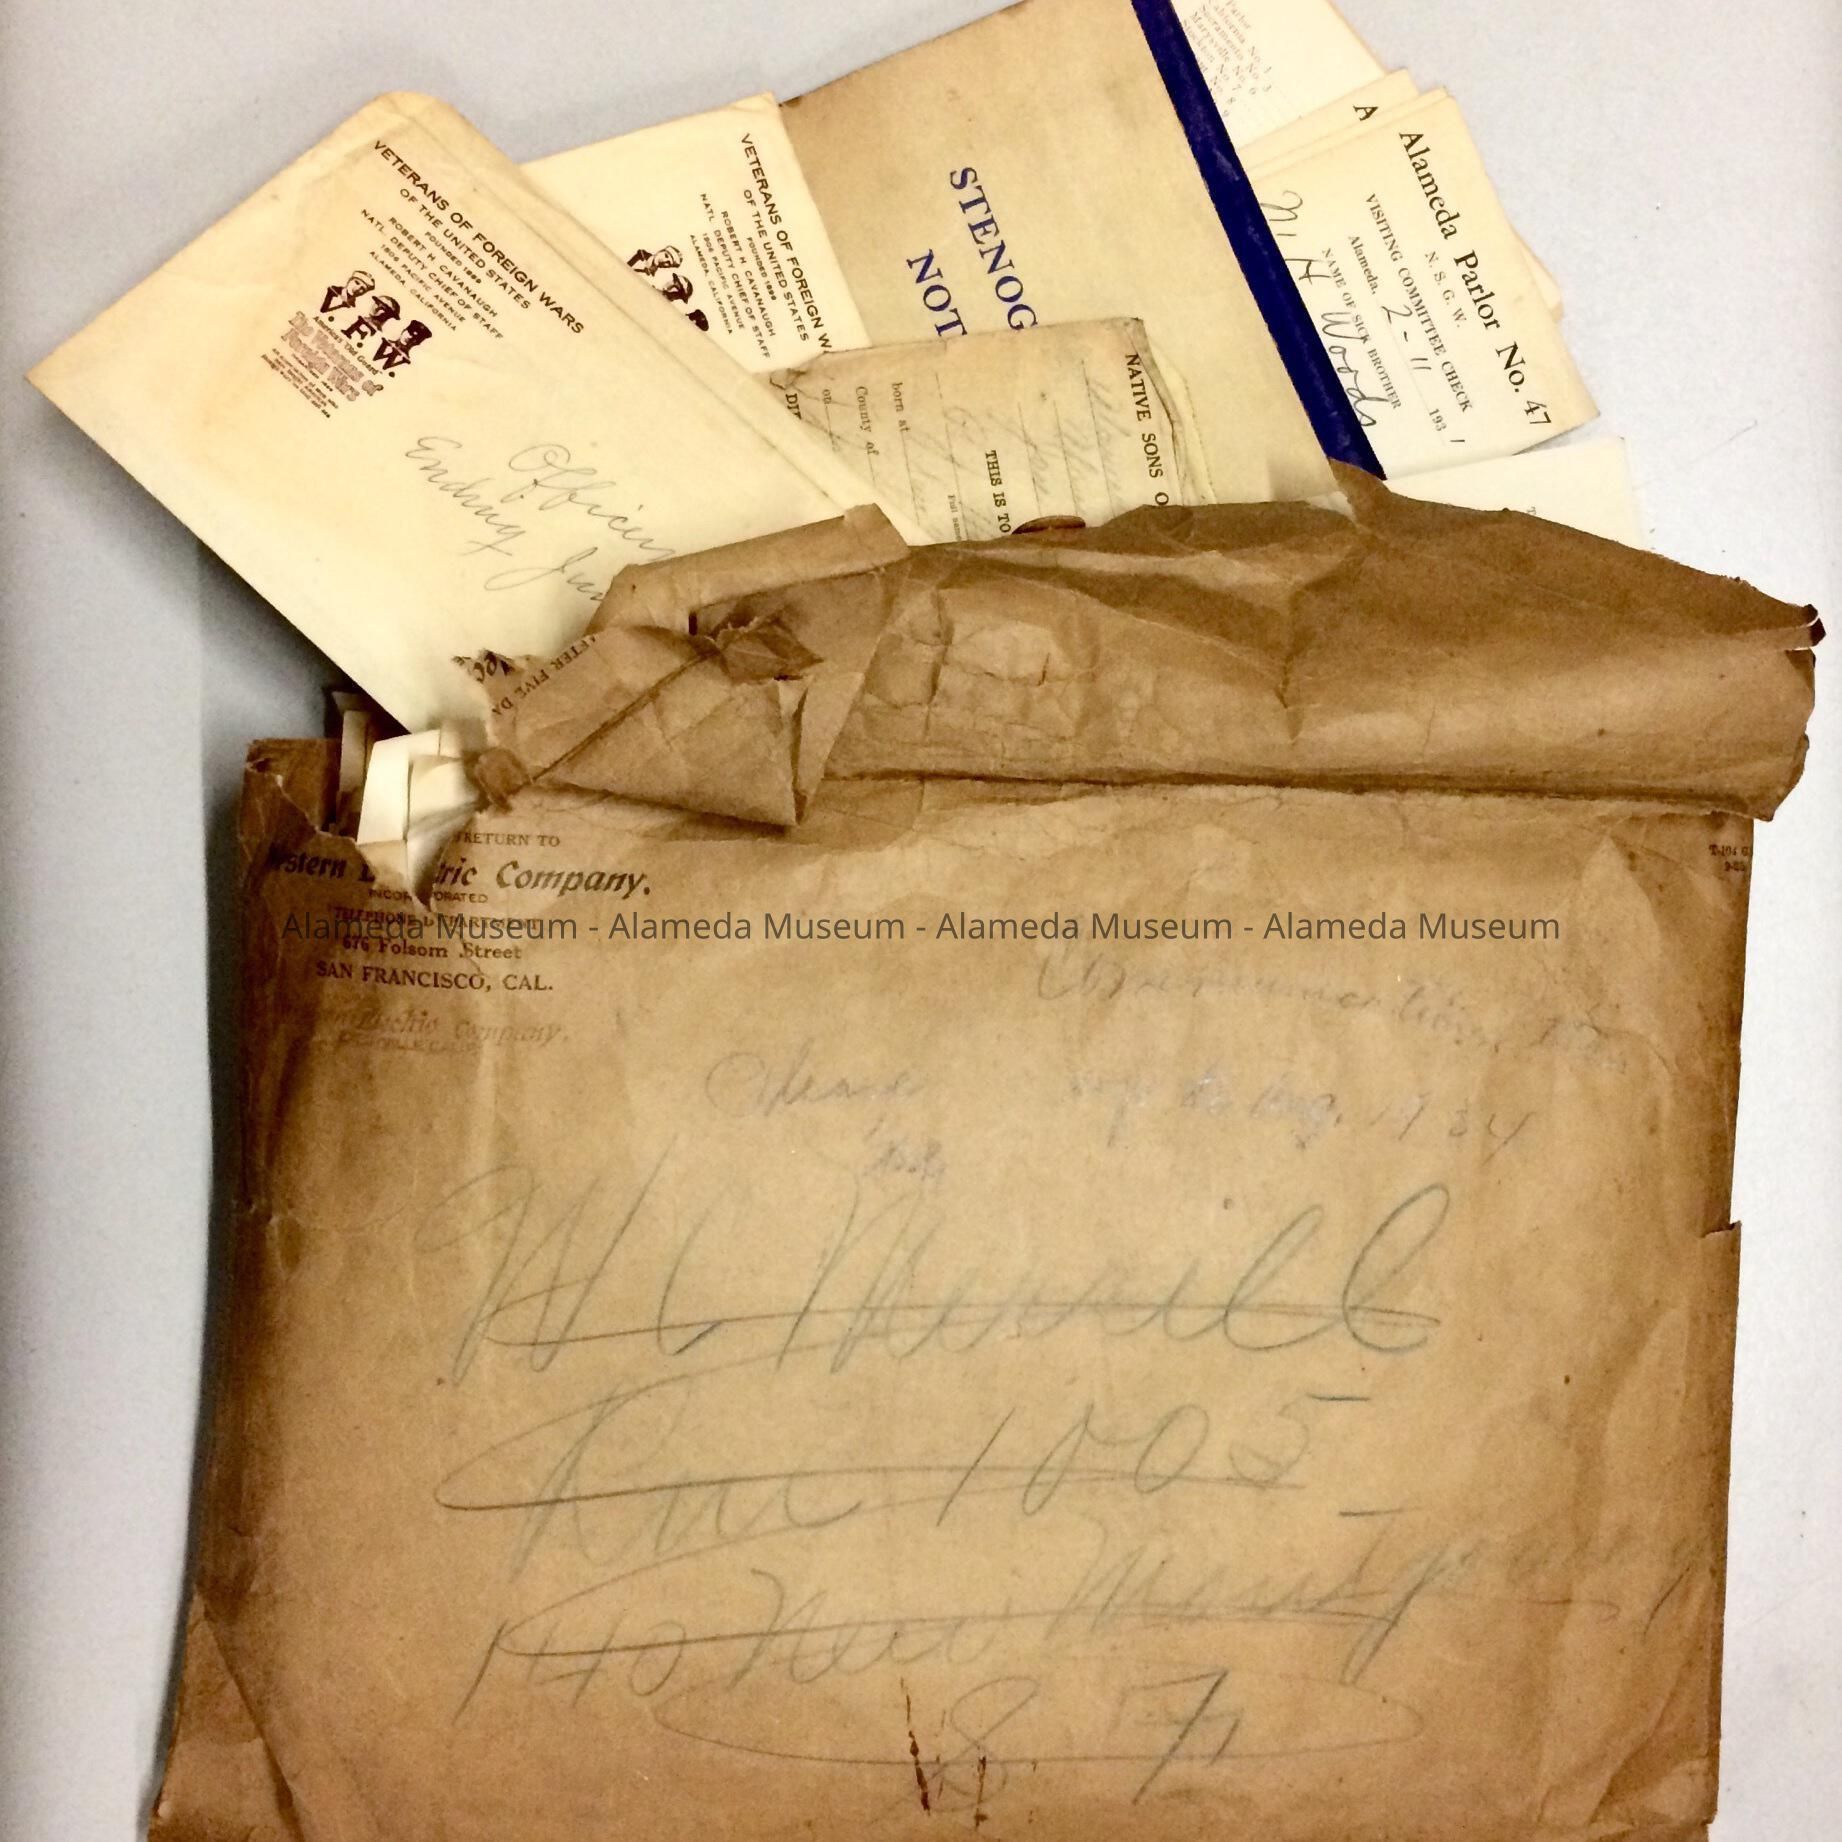 VETERANS OF FOREIGN WARS
OF THE UNITED STATES
FOUNDED 1899
ROBERT H. CAVANAUGH
NATL. DEPUTY CHIEF OF STAFF
1906 PACIFIC AVENUE
ALAMEDA, CALIFORNIA
V. F. W.
The Veterans of
Foreign Wars
Officers
Ending Jun
VETERANS OF FOREIGN W
OF THE UNITED STATES
FOUNDED 1899
ROBERT H. CAVANAUGH
NATL. DEPUTY CHIEF OF STAFF
1906 PACIFIC AVENUE
ALAMEDA, CALIFORNIA
STENOG
NOT
NATIVE SONS O
THIS IS TO
Full name
born at
County of
on
DIE
Parlor
California No. 1
Sacramento No. 3
Marysville No. 6
Stockton No. 7
No. 8
A
Alameda Parlor No. 47
N. S. G. W.
VISITING COMMITTEE CHECK
Alameda, 2-11 1931
NAME OF SICK BROTHER
M H Woods
TER FIVE DA
RETURN TO
stern ric Company.
INCORPORATED
TELEPHONE DEPARTMENT
676 Folsom Street
SAN FRANCISCO, CAL.
Company.
Alameda Museum - Alameda Museum - Alameda Museum - Alameda Museum
up to Aug. 1934
W C Merrill
Rm 1005
140 New Montgomery
S F